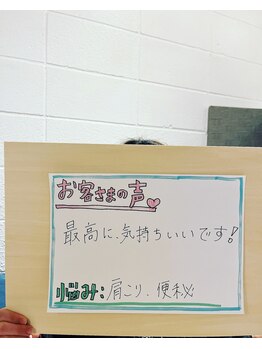 お客さまの声
最高に、気持ちいいです!
悩み:肩こり、便秘